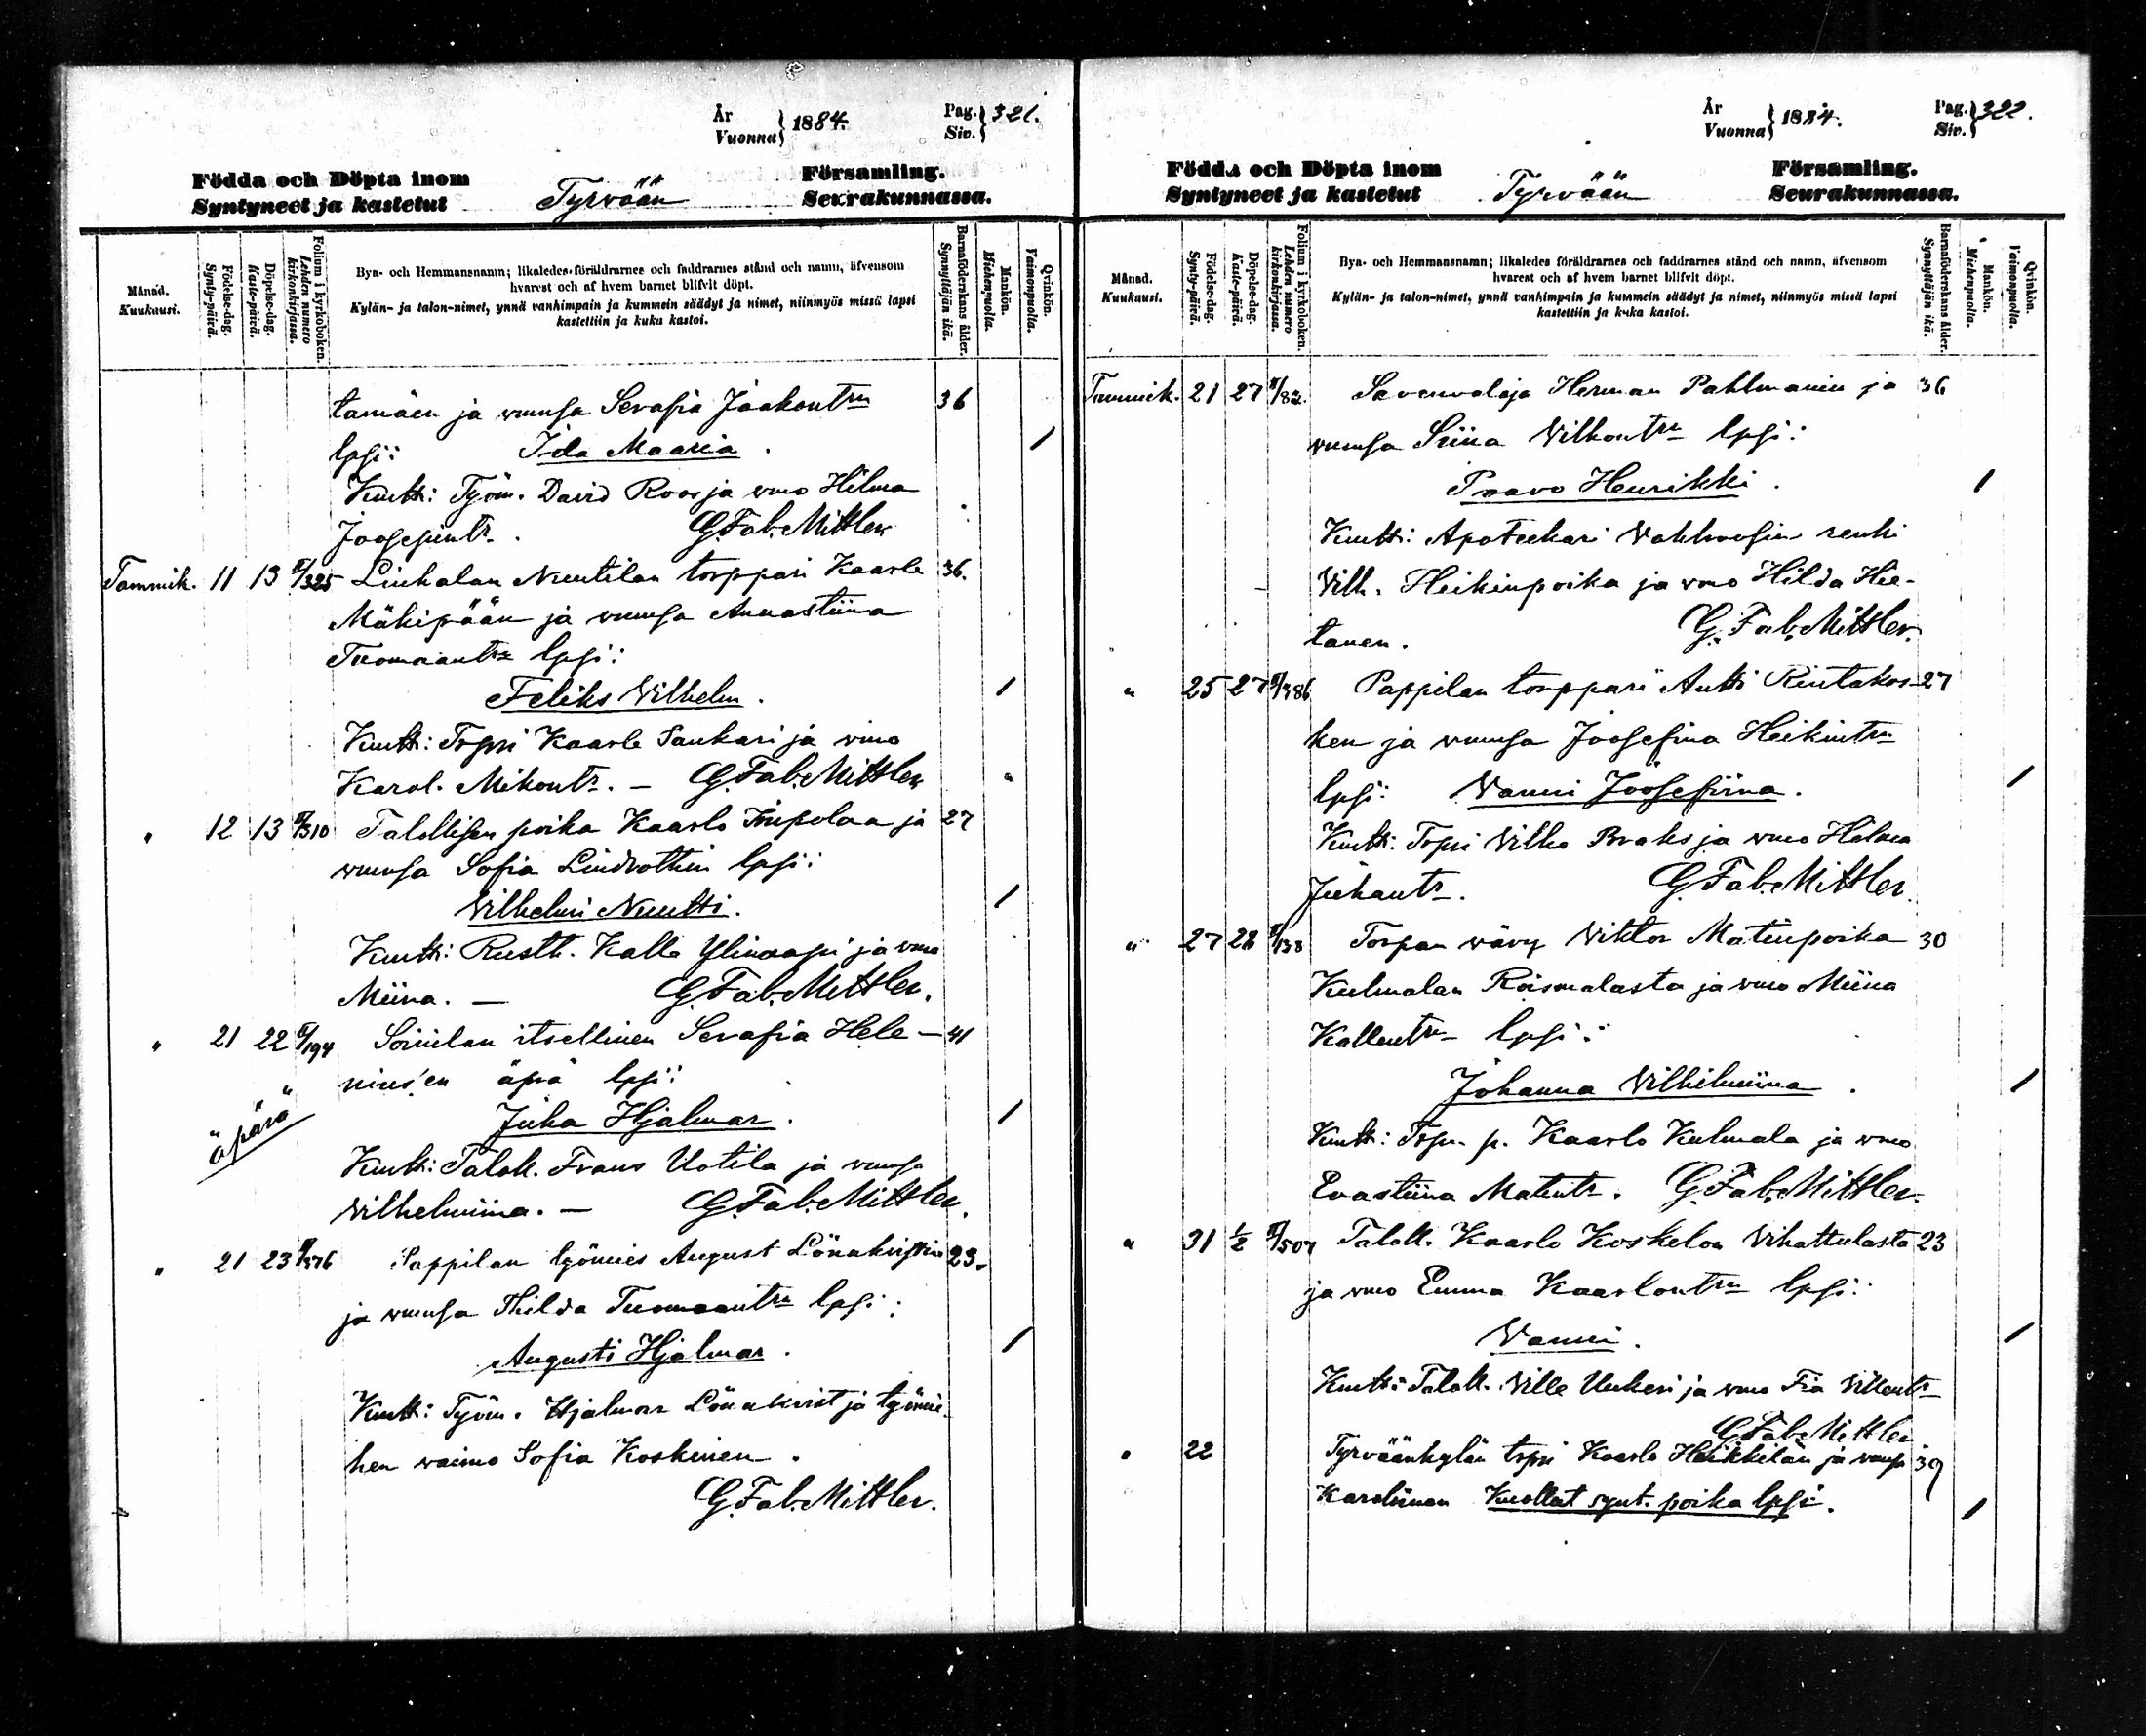 År
Vuonna } 1884.
Pag.
Siv. } 321.
Födda och Döpta inom
Syntyneet ja kastetut
Tyrvään
Församling.
Seurakunnassa.
Månad.
Kuukausi.
Födelse-dag.
Synty-päivä.
Döpelse-dag.
Kaste-päivä.
Folium i kyrkoboken.
Lehden numero kirkonkirjassa.
Bya- och Hemmansnamn; likaledes föräldrarnes och faddrarnes stånd och namn, äfvensom
hvarest och af hvem barnet blifvit döpt.
Kylän- ja talon-nimet, ynnä vanhimpain ja kummein säädyt ja nimet, niinmyös missä lapsi
kastettiin ja kuka kastoi.
Barnaföderskans ålder.
Synnyttäjän ikä.
Mankön.
Miehenpuolia.
Qvinkön.
Vaimonpuolia.
tamäen ja wmnsa Serafia Jaakontrn 36
lpsi: Ida Maaria. /
Kmtt: Työm. David Roos ja wmo Hilma
Joosepintr. G. Fab. Mittler
Tammik. 11 13 /325 Liuhalan Nuutilan torppari Kaarle 36.
Mäkipään ja wmnsa Annastiina
Tuomaantrn lpsi:
Feliks Vilhelm. /
Kmtt: Torppi Kaarle Saukari ja wmo
Karol. Mikontr. — G. Fab. Mittler
" 12 13 /310 Talollisen poika Kaarlo ja 27
wmnsa Sofia Lindrothin lpsi:
Vilhelmi Nuutti. /
Kmtt: Rusth. Kalle ja wmo
Miina. — G. Fab. Mittler.
" 21 22 /194 Soinilan itsellinen Serafia Hele- 41
nius'en äpä lpsi:
äpärä
Juha Hjalmar. /
Kmtt: Taloll. Frans Uotila ja wmnsa
Vilhelmiina. — G. Fab. Mittler.
" 21 23 /576 Pappilan työmies August Lönnkvistin 23.
ja wmnsa Thilda Tuomaantrn lpsi:
Augusti Hjalmar. /
Kmtt: Työm. Hjalmar Lönnkvist ja työmie-
hen vaimo Sofia Koskinen.
G. Fab. Mittler.
År
Vuonna } 1884.
Pag.
Siv. } 322.
Födda och Döpta inom
Syntyneet ja kastetut
Tyrvään
Församling.
Seurakunnassa.
Månad.
Kuukausi.
Födelse-dag.
Synty-päivä.
Döpelse-dag.
Kaste-päivä.
Folium i kyrkoboken.
Lehden numero kirkonkirjassa.
Bya- och Hemmansnamn; likaledes föräldrarnes och faddrarnes stånd och namn, äfvensom
hvarest och af hvem barnet blifvit döpt.
Kylän- ja talon-nimet, ynnä vanhimpain ja kummein säädyt ja nimet, niinmyös missä lapsi
kastettiin ja kuka kastoi.
Barnaföderskans ålder.
Synnyttäjän ikä.
Mankön.
Miehenpuolia.
Qvinkön.
Vaimonpuolia.
Tammik. 21 27 /82. Savenvalaja Herman Pahlmanin ja 36
wmnsa Siina Vilhontrn lpsi:
Paavo Henrikki. /
Kmtt: Apoteekari renki
Vilh. Heikinpoika ja wmo Hilda Hie-
tanen. G. Fab. Mittler.
" 25 27 /386 Pappilan torppari Antti Rintakos- 27
ken ja wmnsa Joosefina Heikintrn
lpsi: Vanni Joosefiina. /
Kmtt: Torppi Vilho Braks ja wmo Hilma
Juhantr. G. Fab. Mittler.
" 27 28 /138 Torpan vävy Viktor Matinpoika 30
Kulmalan Roismalasta ja wmo Miina
Kallentrn lpsi:
Johanna Vilhelmiina. /
Kmtt: Torp. p. Kaarlo Kulmala ja wmo
Evastiina Matintr. G. Fab. Mittler.
" 31 ½ /507 Taloll. Kaarlo Koskelon Vihattulasta 23
ja wmo Emma Kaarlontrn lpsi:
Vanni. /
Kmtt: Taloll. Ville Unkeri ja wmo Fia Villentr
G. Fab. Mittler
" 22 Tyrväänkylän torppi Kaarlo Heikkilän ja wmnsa 39
Karoliinan Kuollut synt. poika lpsi. /